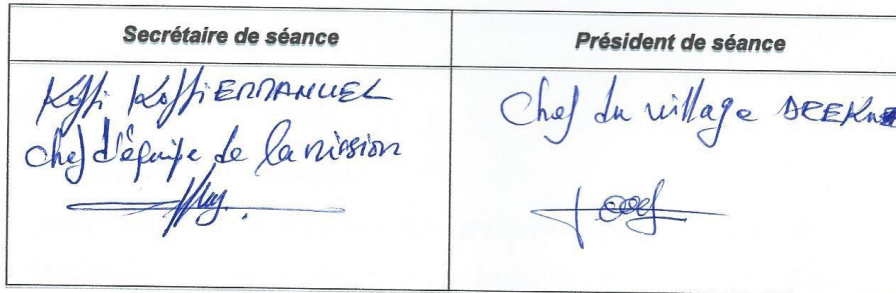 Secrétaire de séance
Président de séance
Koffi Koffi EMMANUEL
Chef d'équipe de la mission
Chef du village